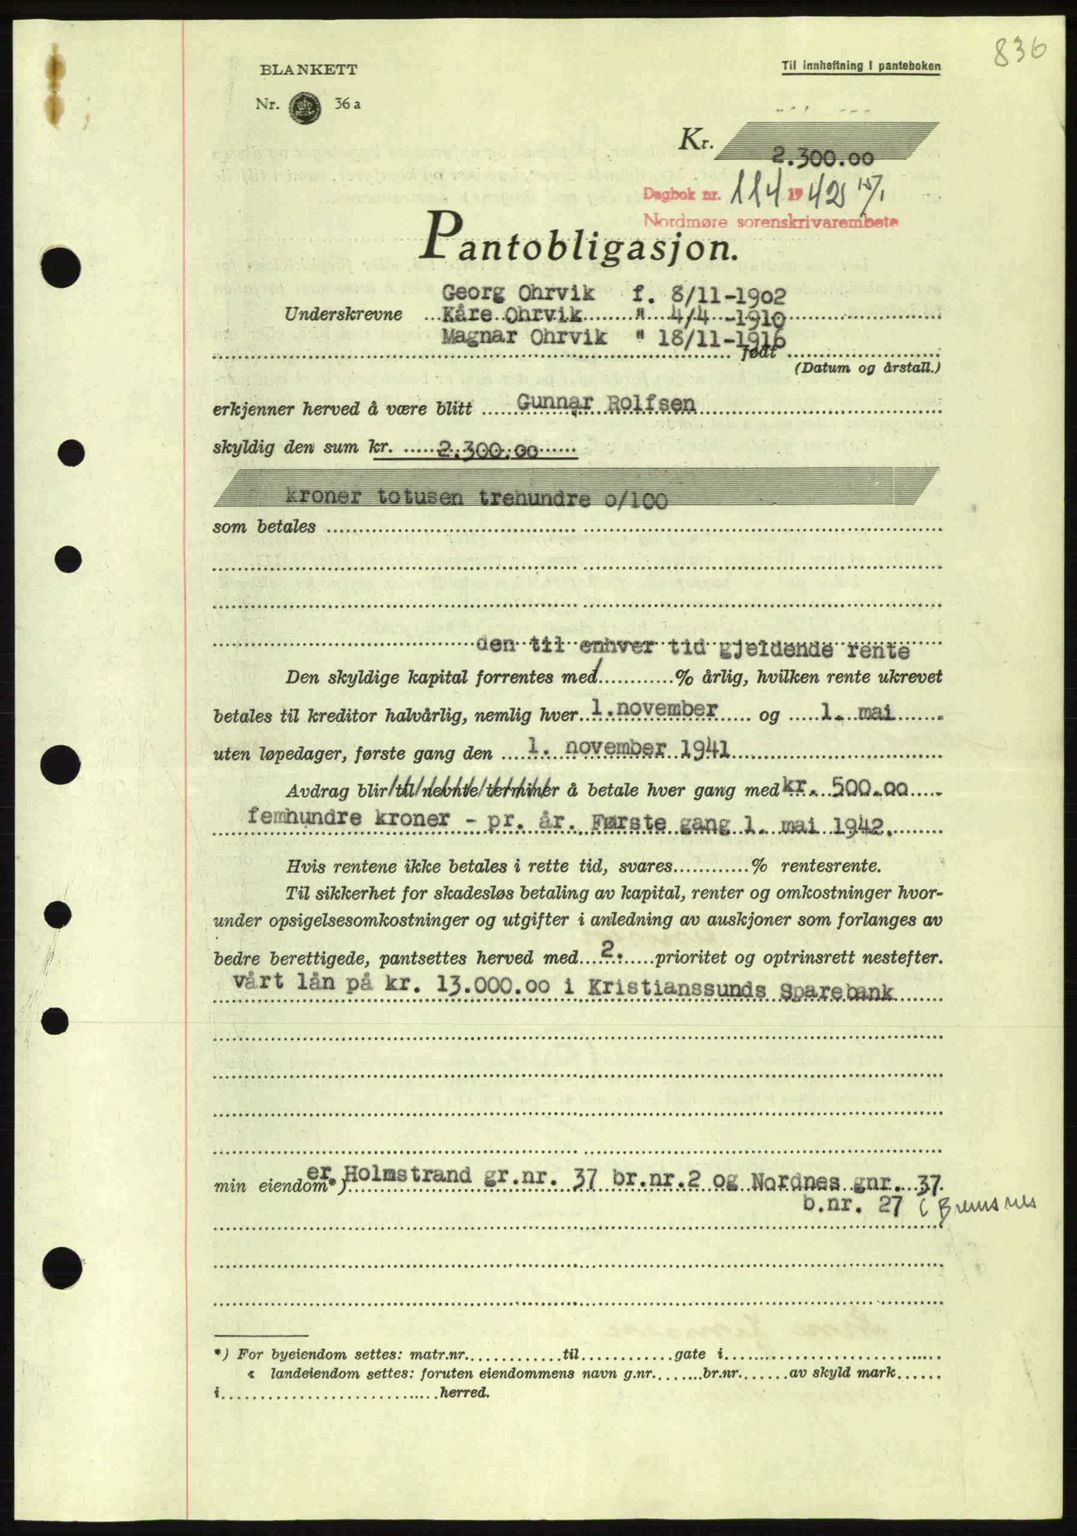 836
Til innheftning i panteboken
BLANKETT
Nr. 36 a
Kr. 2.300.00
Dagbok nr. 114 1942 15/1
Nordmøre sorenskrivarembete
Pantobligasjon.
Georg Ohrvik f. 8/11-1902
Underskrevne Kåre Ohrvik " 4/4 -1910
Magnar Ohrvik " 18/11-1916
født
(Datum og årstall.)
erkjenner herved å være blitt Gunnar Rolfsen
skyldig den sum kr. 2.300.00
kroner totusen trehundre o/100
som betales
den til enhver tid gjeldende rente
Den skyldige kapital forrentes med/............% årlig, hvilken rente ukrevet
betales til kreditor halvårlig, nemlig hver 1.november og 1. mai
uten løpedager, første gang den 1. november 1941
Avdrag blir til nevnte terminer å betale hver gang med kr. 500.00
femhundre kroner - pr. år. Første gang 1. mai 1942.
Hvis rentene ikke betales i rette tid, svares............% rentesrente.
Til sikkerhet for skadesløs betaling av kapital, renter og omkostninger hvor-
under opsigelsesomkostninger og utgifter i anledning av auskjoner som forlanges av
bedre berettigede, pantsettes herved med 2. prioritet og optrinsrett nestefter.
vårt lån på kr. 13.000.00 i Kristianssunds Sparebank
min eiendom*) er Holmstrand gr.nr. 37 br.nr.2 og Nordnes gnr. 37
b.nr. 27 (Bremsnes
*) For byeiendom settes: matr.nr.............til............gate i................................
« landeiendom settes: foruten eiendommens navn g.nr........br.nr.......av skyld mark......
i............................herred.